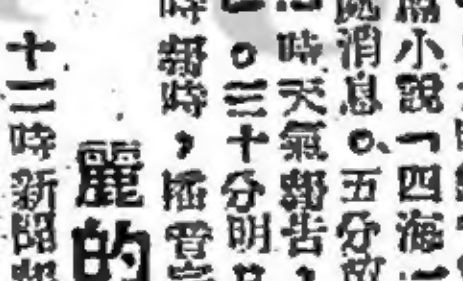 篇小說「四海一
處消息。五分故
時天氣報告,
一〇三十分明
時報時,播音
麗的
十二時新聞報